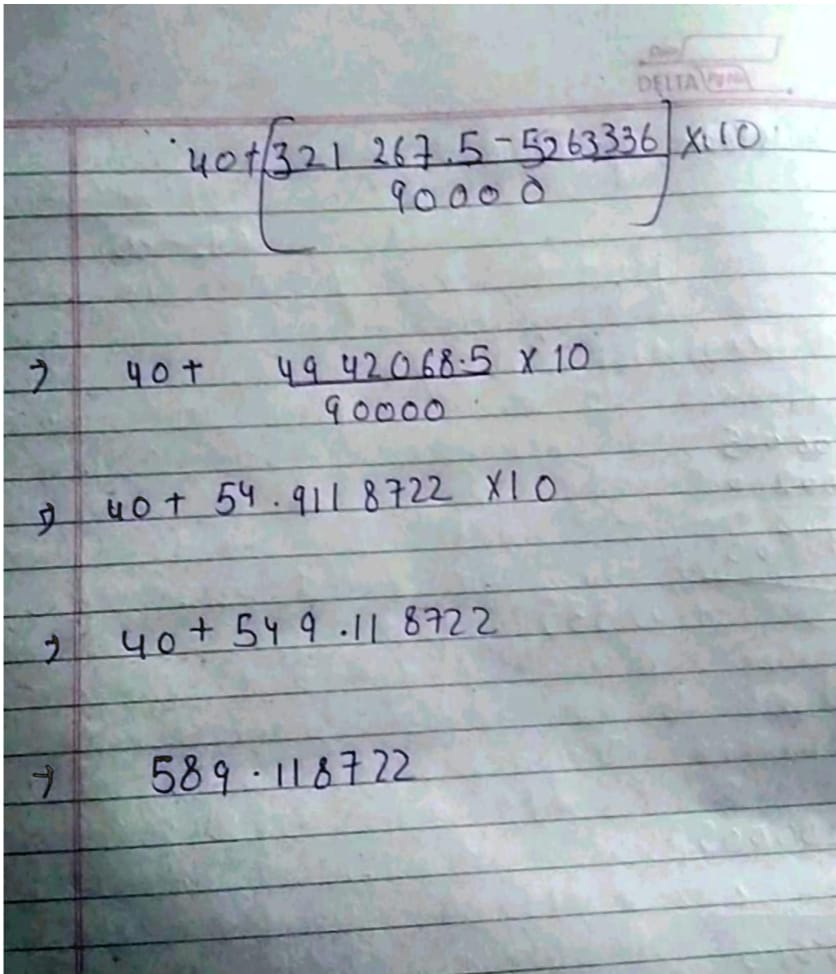 DELTA
40+[321 267.5-5263336]×10
90000
⇒ 40+ 4942068.5 × 10
90000
⇒ 40+ 54.9118722 ×10
⇒ 40+549.118722
⇒ 589.118722